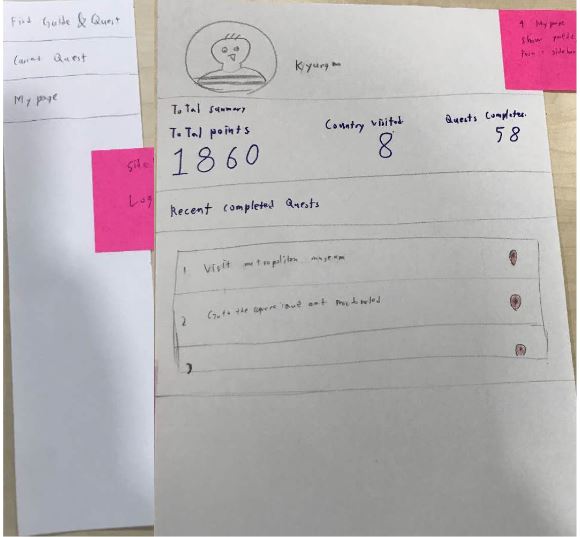 Find Guide & Quest
Quest
My page
Side
Log
4 My page
show
side bar
Total summary
Total points
1860
Country visited
8
Quests Completes.
58
Recent completed Quests
1 Visit metropolitan museum
2 Go to the square and
3